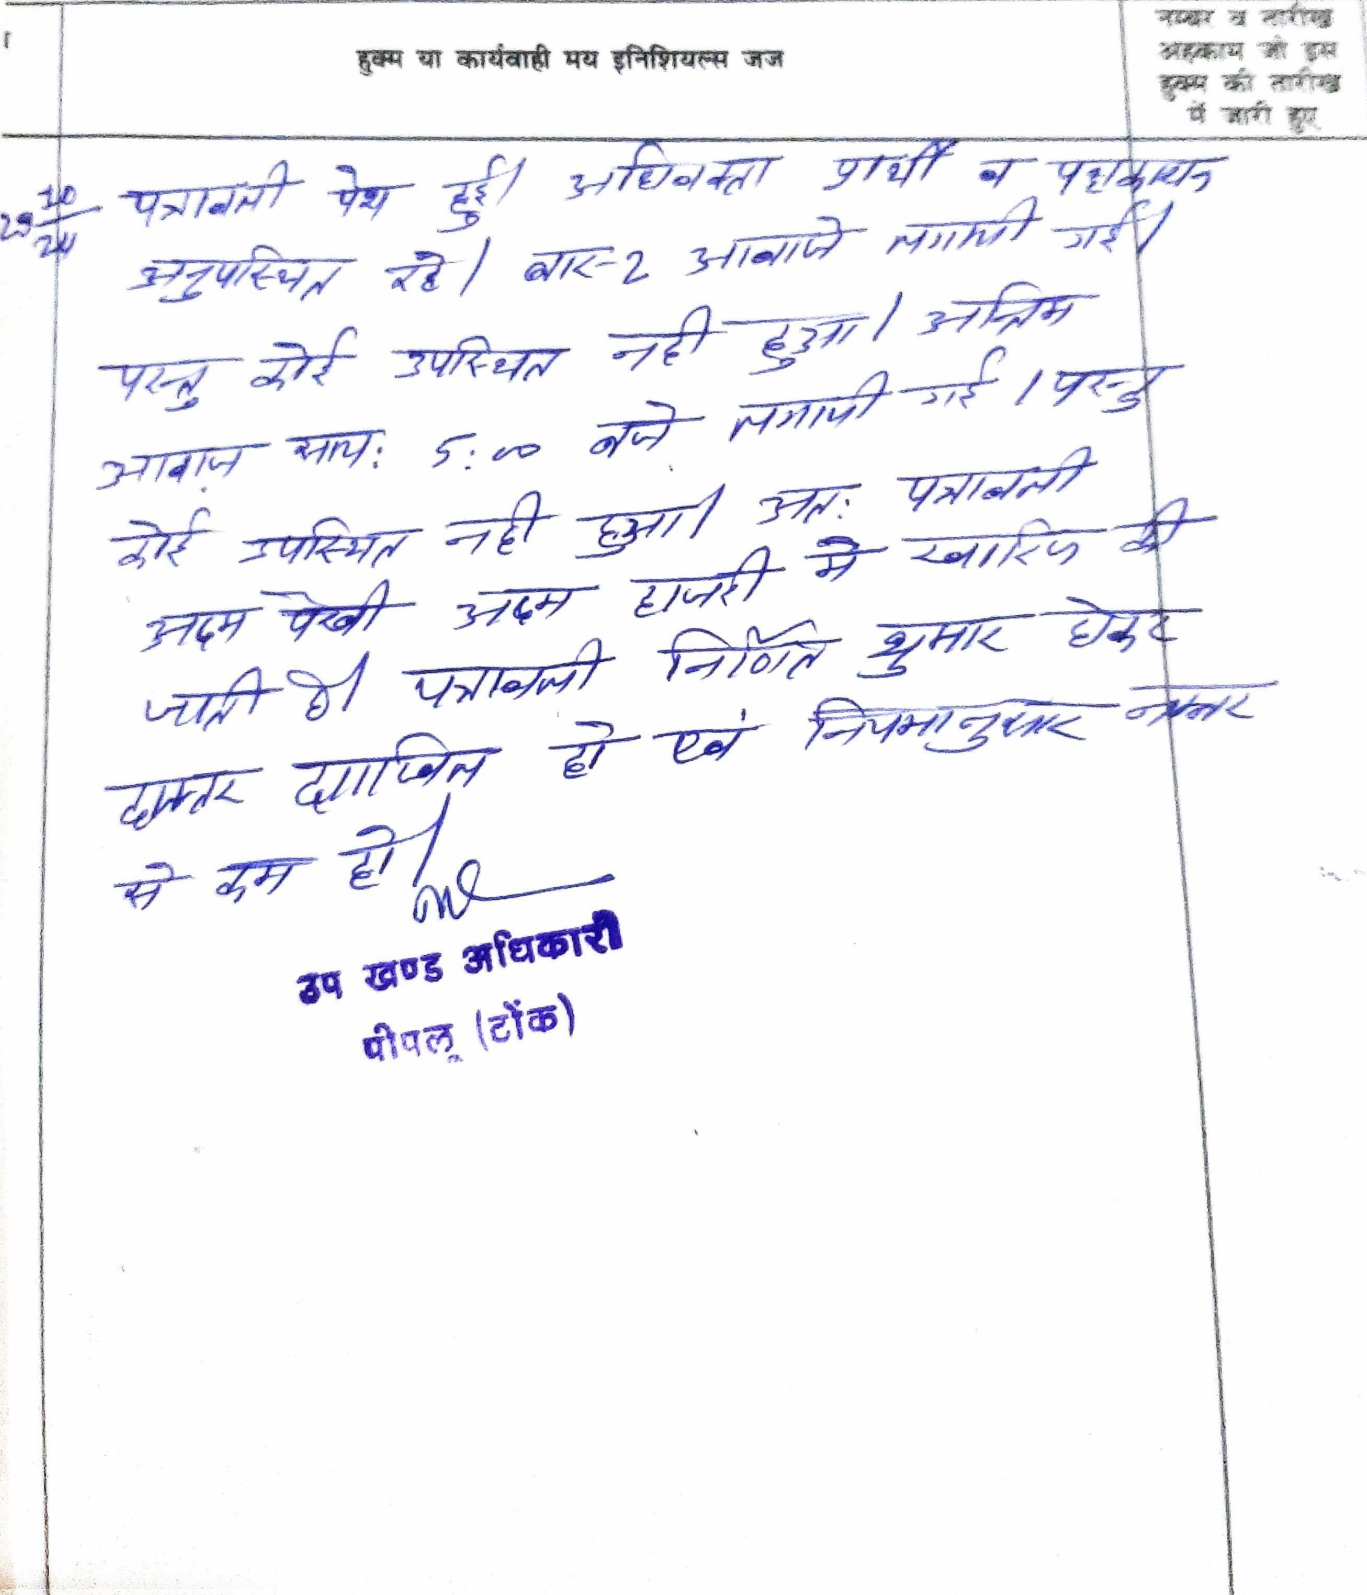 हुक्म या कार्यवाही मय इनिशियल्स जज
नम्बर व तारीख
अहकाम जो इस
हुक्म की तारीख
में जारी हुए
29/10/24
पत्रावली पेश हुई। अधिवक्ता प्रार्थी व पक्षकारान
अनुपस्थित रहे। बार-2 आवाजे लगायी गई।
परन्तु कोई उपस्थित नही हुआ। अन्तिम
आवाज़ सायः 5:00 बजे लगायी गई। परन्तु
कोई उपस्थित नही हुआ। अतः पत्रावली
अदम पेरवी अदम हाजरी मे खारिज की
जाती है। पत्रावली निर्णित शुमार होकर
दफ्तर दाखिल हो एवं नियमानुसार नम्बर
से कम हो।
उप खण्ड अधिकारी
पीपलू (टोंक)